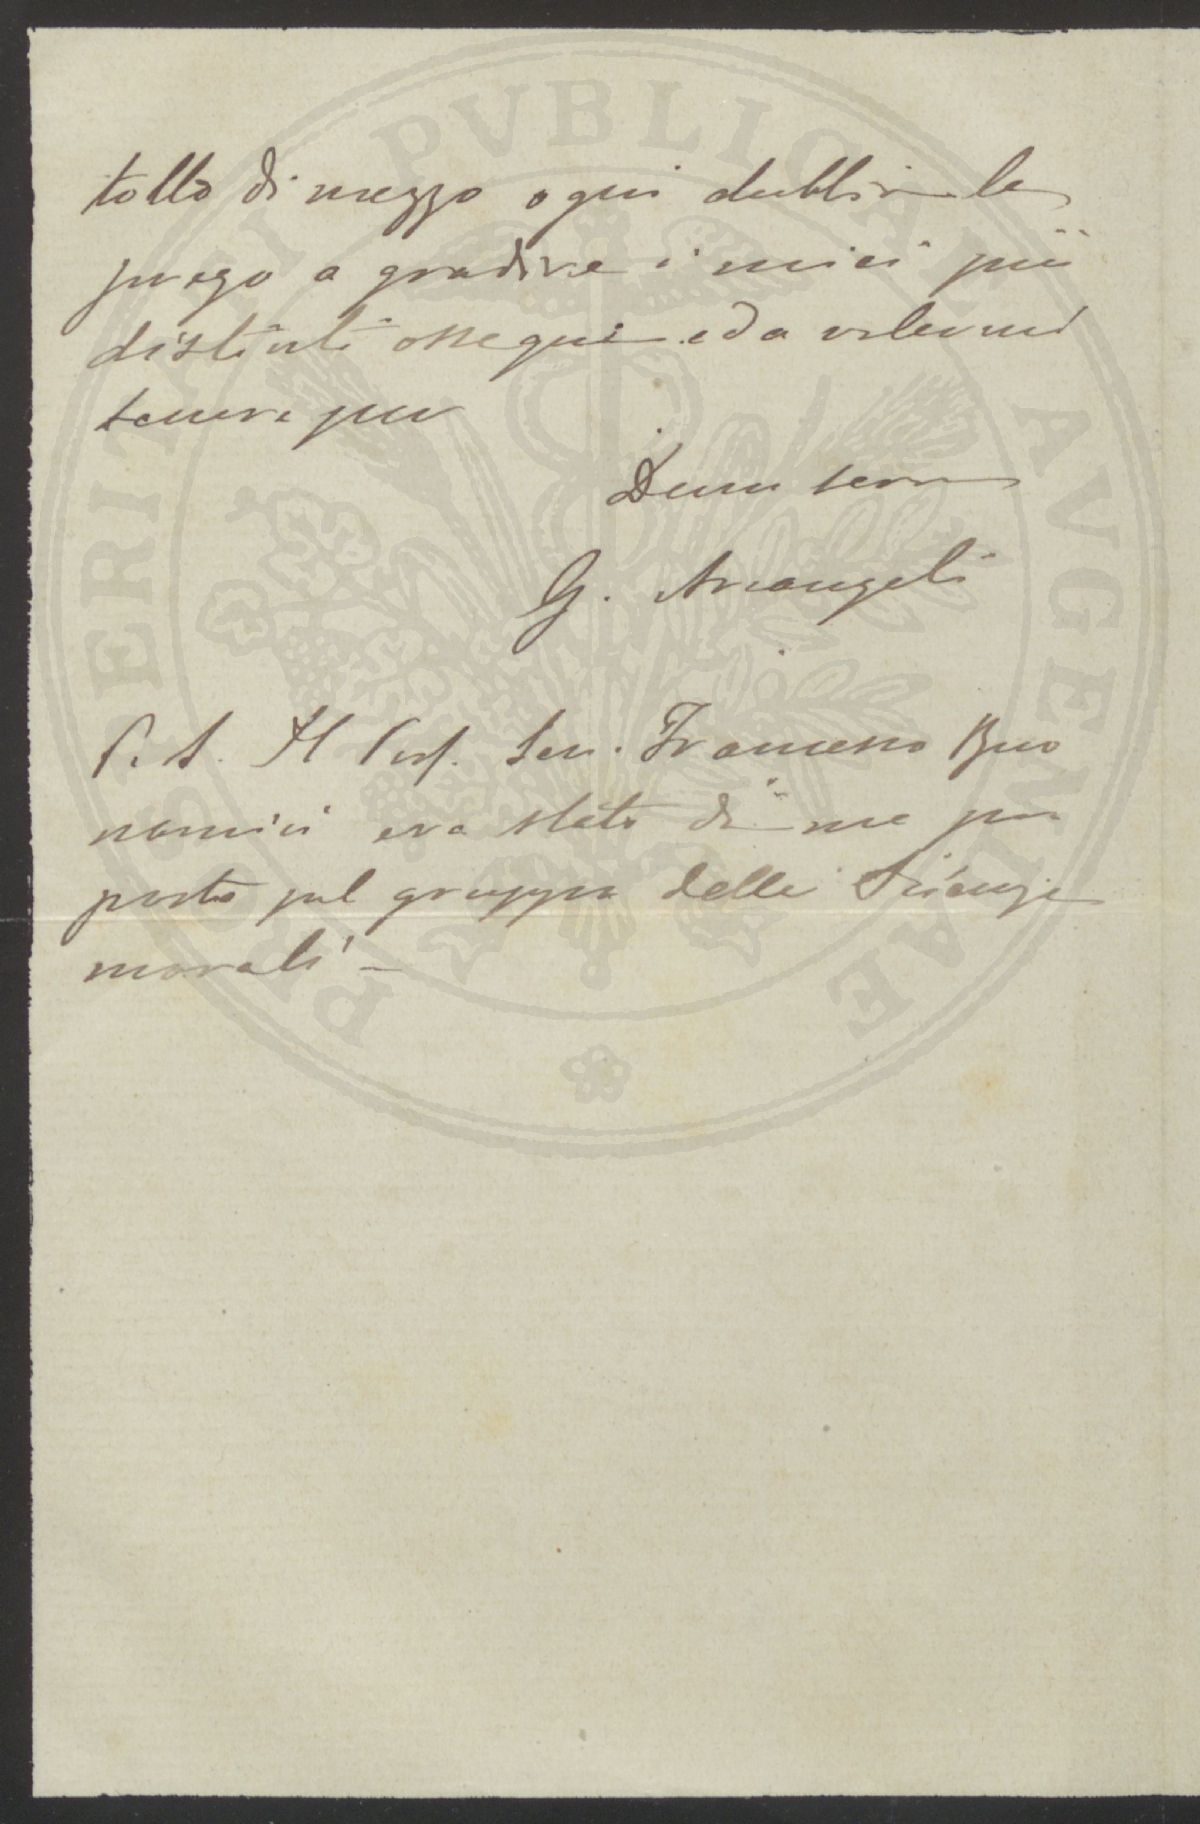 tolto di mezzo ogni dubbio la
prego a gradire i miei più
distinti ossequi ed a volermi
tenere per
Devmo servo
G. Arcangeli
P. S. Il Prof. Sen. Francesco Buo
namici era stato da me pro
posto pel gruppo delle Scienze
morali —
PROSPERITATI PVBLICAE AVGENDAE